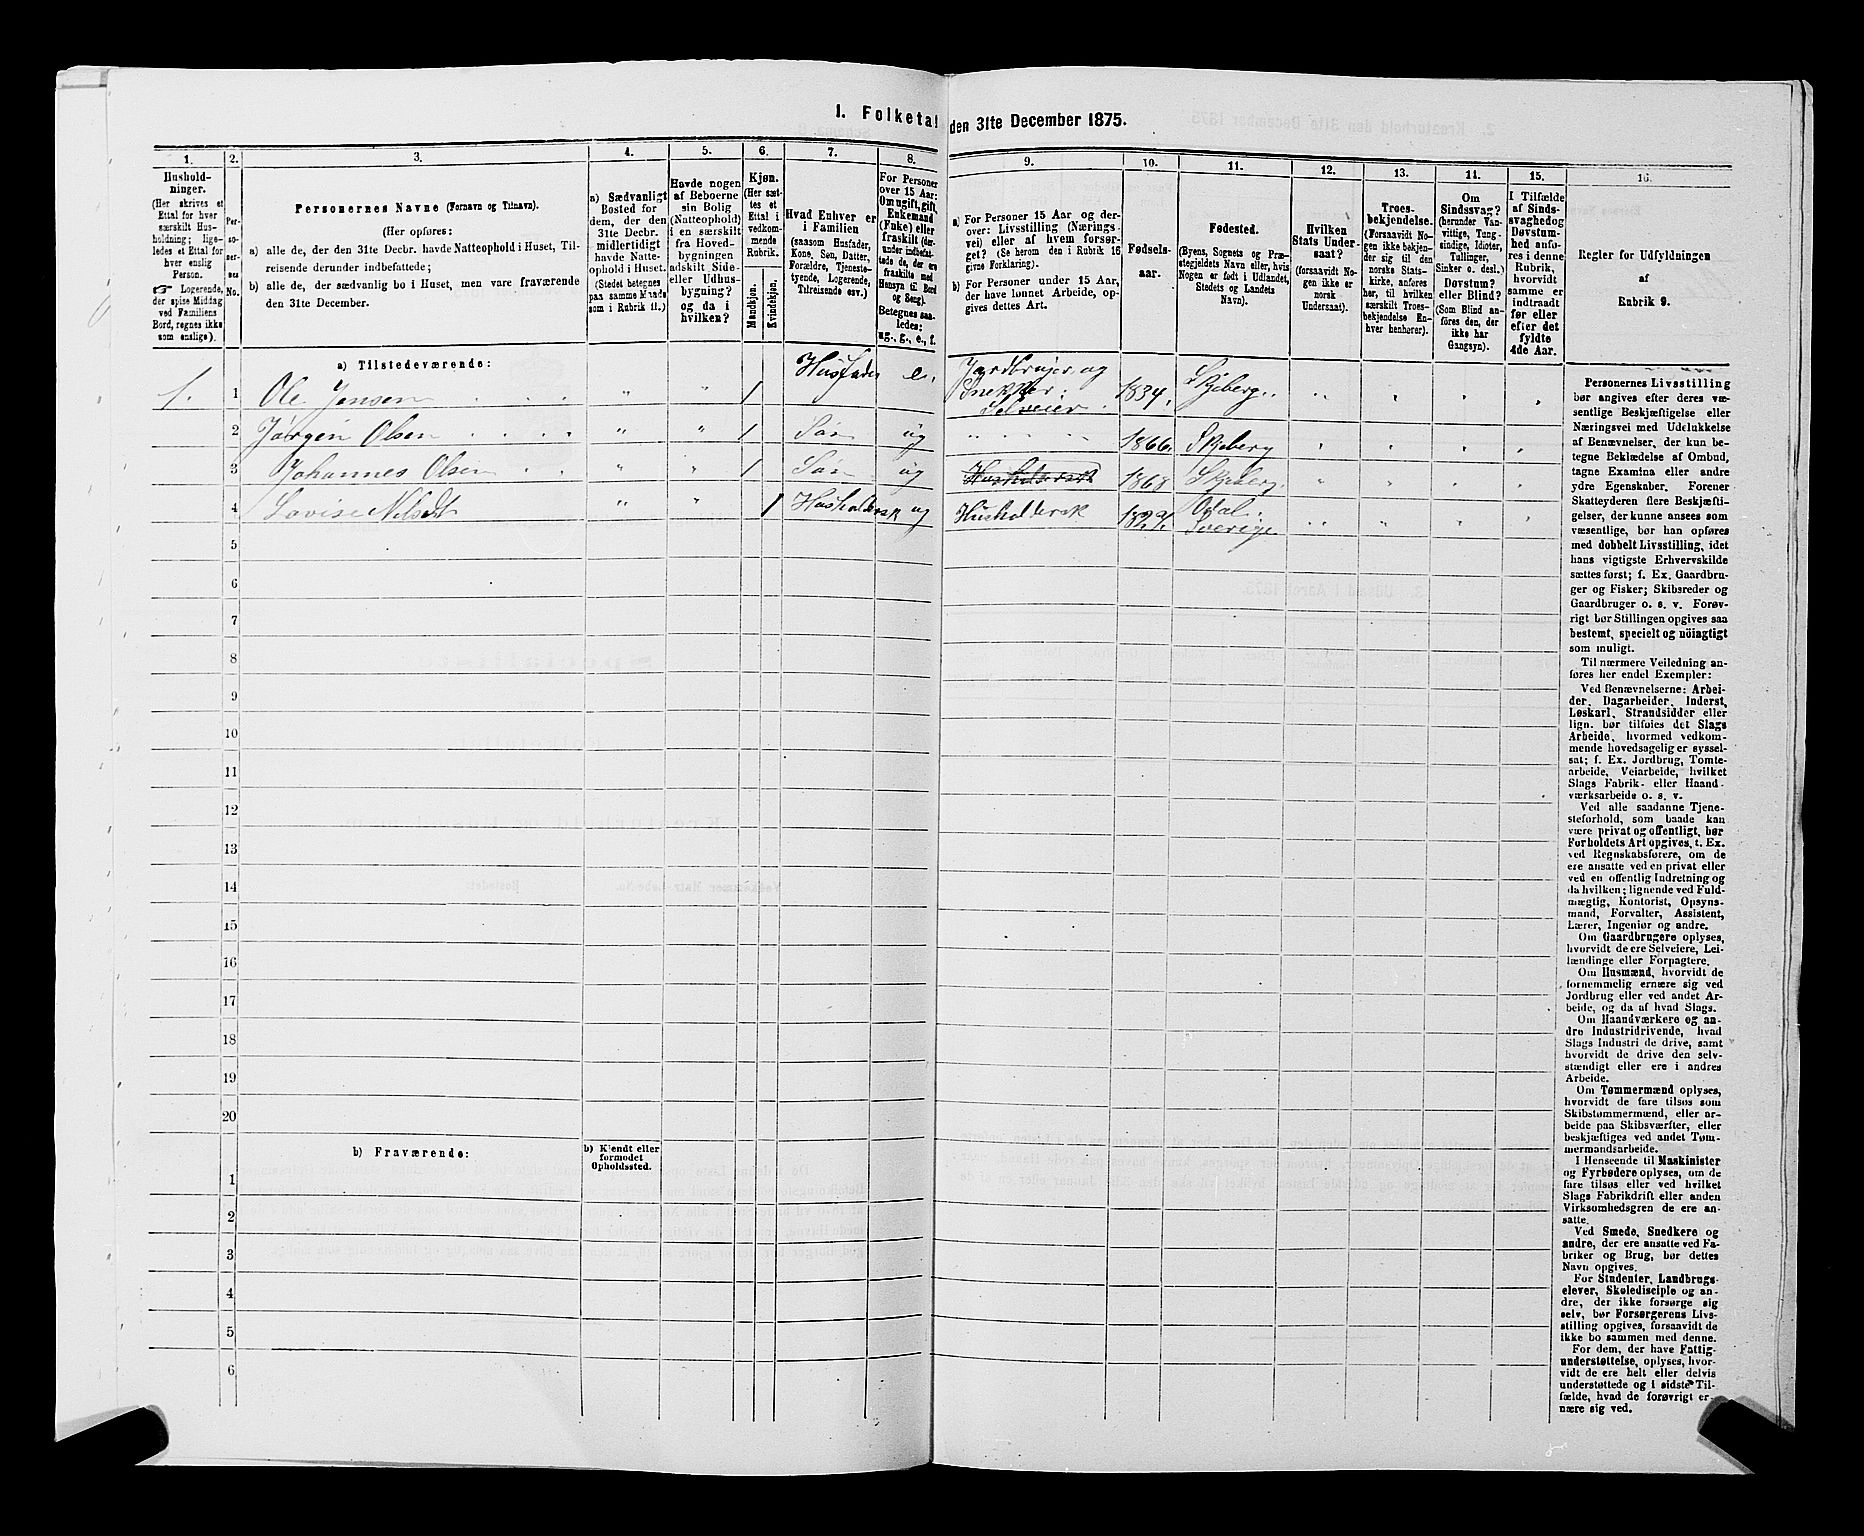 I. Folketal den 31te December 1875.
1.
Hushold-
ninger.
(Her skrives et
Ettal for hver
særskilt Hus-
holdning; lige-
ledes et Ettal for
hver enslig
Person.
☞ Logerende,
der spise Middag
ved Familiens
Bord, regnes ikke
som enslige).
2.
Per-
so-
ner-
nes
No.
3.
Personernes Navne (Fornavn og Tilnavn).
(Her opføres:
a) alle de, der den 31te Decbr. havde Natteophold i Huset, Til-
reisende derunder indbefattede;
b) alle de, der sædvanlig bo i Huset, men vare fraværende
den 31te December.
4.
a) Sædvanligt
Bosted for
dem, der den
31te Decbr.
midlertidigt
havde Natte-
ophold i Huset.
(Stedet betegnes
paa samme Maade
som i Rubrik 11.)
5.
Havde nogen
af Beboerne
sin Bolig
(Natteophold)
i en særskilt
fra Hoved-
bygningen
adskilt Side-
eller Udhus-
bygning?
og da i
hvilken?
6.
Kjøn.
(Her sæt-
tes et
Ettal i
vedkom-
mende
Rubrik.
Mandkjøn.
Kvindekjøn.
7.
Hvad Enhver er
i Familien
(saasom Husfader,
Kone, Søn, Datter,
Forældre, Tjeneste-
tyende, Logerende,
Tilreisende osv.)
8.
For Personer
over 15 Aar:
Om ugift, gift,
Enkemand
(Enke) eller
fraskilt (der-
under indbefat-
tede de, der ere
fraskilte med
Hensyn til Bord
og Seng).
Betegnes saa-
ledes:
ug., g., e., f.
9.
a) For Personer 15 Aar og der-
over: Livsstilling (Nærings-
vei) eller af hvem forsør-
get? (Se herom den i Rubrik 16
givne Forklaring).
b) For Personer under 15 Aar,
der have lønnet Arbeide, op-
gives dettes Art.
10.
Fødsels-
aar.
11.
Fødested.
(Byens, Sognets og Præ-
stegjeldets Navn eller, hvis
Nogen er født i Udlandet,
Stedets og Landets
Navn).
12.
Hvilken
Stats Under-
saat?
(forsaavidt No-
gen ikke er
norsk
Undersaat).
13.
Troes-
bekjendelse.
(Forsaavidt No-
gen ikke bekjen-
der sig til den
norske Stats-
kirke, anføres
her, til hvilken
særskilt Troes-
bekjendelse En-
hver henhører).
14.
Om
Sindssvag?
(herunder Van-
vittige, Tung-
sindige, Idioter,
Tullinger,
Sinker o. desl.)
Døvstum?
eller Blind?
(Som Blind an-
føres den, der
ikke har
Gangsyn).
15.
I Tilfælde
af Sinds-
svaghed og
Døvstum-
hed anfø-
res i denne
Rubrik,
hvorvidt
samme er
indtraadt
før eller
efter det
fyldte
4de Aar.
16.
Regler for Udfyldningen
af
Rubrik 9.
a) Tilstedeværende:
1. 1 Ole Jensen " " 1 Husfader e. Jordbruger og Snekker. Selveier. 1834. Skjeberg.
2 Jørgen Olsen " " 1 Søn ug " 1866. Skjeberg
3 Johannes Olsen " " 1 Søn ug Husholdersk 1868 Skjeberg.
4 Lovise Nilsdt " " 1 Husholdersk ug Husholdersk Sverige
5
6
7
8
9
10
11
12
13
14
15
16
17
18
19
20
b) Fraværende:
b) Kjendt eller
formodet
Opholdssted.
1
2
3
4
5
6
Personernes Livsstilling
bør angives efter deres væ-
sentlige Beskjæftigelse eller
Næringsvei med Udelukkelse
af Benævnelser, der kun be-
tegne Beklædelse af Ombud,
tagne Examina eller andre
ydre Egenskaber. Forener
Skatteyderen flere Beskjæfti-
gelser, der kunne ansees som
væsentlige, bør han opføres
med dobbelt Livsstilling, idet
hans vigtigste Erhvervskilde
sættes først; f. Ex. Gaardbru-
ger og Fisker; Skibsreder og
Gaardbruger o. s. v. Forøv-
rigt bør Stillingen opgives saa
bestemt, specielt og nöiagtigt
som muligt.
Til nærmere Veiledning an-
føres her endel Exempler:
Ved Benævnelserne: Arbei-
der, Dagarbeider, Inderst,
Løskarl, Strandsidder eller
lign. bør tilføies det Slags
Arbeide, hvormed vedkom-
mende hovedsagelig er syssel-
sat; f. Ex. Jordbrug, Tomte-
arbeide, Veiarbeide, hvilket
Slags Fabrik- eller Haand-
værksarbeide o. s. v.
Ved alle saadanne Tjene-
steforhold, som baade kan
være privat og offentligt, bør
Forholdets Art opgives, t. Ex.
ved Regnskabsførere, om de
ere ansatte ved en privat eller
ved en offentlig Indretning og
da hvilken; lignende ved Fuld-
mægtig, Kontorist, Opsyns-
mand, Forvalter, Assistent,
Lærer, Ingeniør og andre.
Om Gaardbrugere oplyses,
hvorvidt de ere Selveiere, Lei-
lændinge eller Forpagtere.
Om Husmænd, hvorvidt de
fornemmelig ernære sig ved
Jordbrug eller ved andet Ar-
beide, og da af hvad Slags.
Om Haandværkere og an-
dre Industridrivende, hvad
Slags Industri de drive, samt
hvorvidt de drive den selv-
stændigt eller ere i andres
Arbeide.
Om Tømmermænd oplyses,
hvorvidt de fare tilsøs som
Skibstømmermænd, eller ar-
beide paa Skibsværfter, eller
beskjæftiges ved andet Tøm-
mermandsarbeide.
I Henseende til Maskinister
og Fyrbødere oplyses, om de
fare tilsøs eller ved hvilket
Slags Fabrikdrift eller anden
Virksomhedsgren de ere an-
satte.
Ved Smede, Snedkere og
andre, der ere ansatte ved Fa-
briker og Brug, bør dettes
Navn opgives.
For Studenter, Landbrugs-
elever, Skoledisciple og an-
dre, der ikke forsørge sig
selv, bør Forsørgerens Livs-
stilling opgives, forsaavidt de
ikke bo sammen med denne.
For dem, der have Fattig-
understøttelse, oplyses, hvor-
vidt de ere helt eller delvis
understøttede og i sidste Til-
fælde, hvad de forøvrigt er-
nære sig ved.